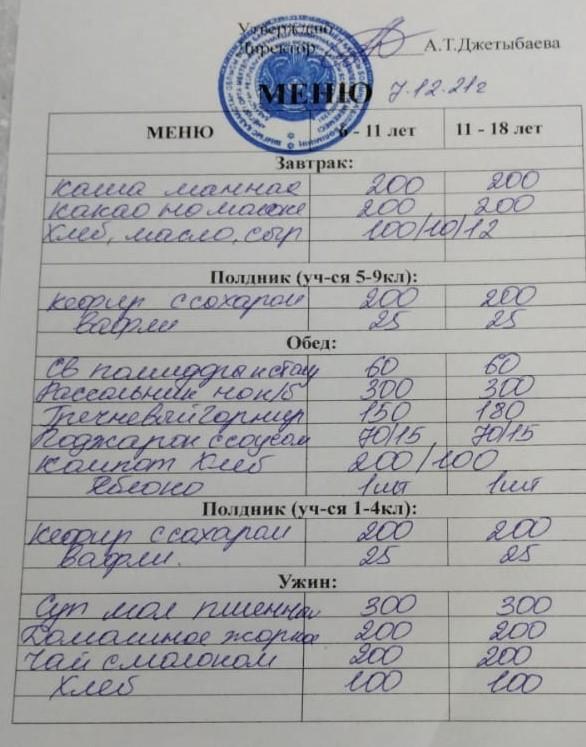 Утверждаю
Директор А.Т.Джетыбаева
МЕНЮ 7.12.21г
МЕНЮ 6 - 11 лет 11 - 18 лет
Завтрак:
Каша манная 200 200
Какао на молоке 200 200
Хлеб, масло, сыр 100/10/12
Полдник (уч-ся 5-9кл):
Кефир с сахаром 200 200
Вафли 25 25
Обед:
Св помидоры 60 60
Рассольник на к/б 300 300
Гречневый гарнир 150 180
Поджарка с соусом 70/15 70/15
Компот Хлеб 200/100
Яблоко 1шт 1шт
Полдник (уч-ся 1-4кл):
Кефир с сахаром 200 200
Вафли. 25 25
Ужин:
Суп мол пшенная 300 300
Домашнее жаркое 200 200
Чай с молоком 200 200
Хлеб 100 100